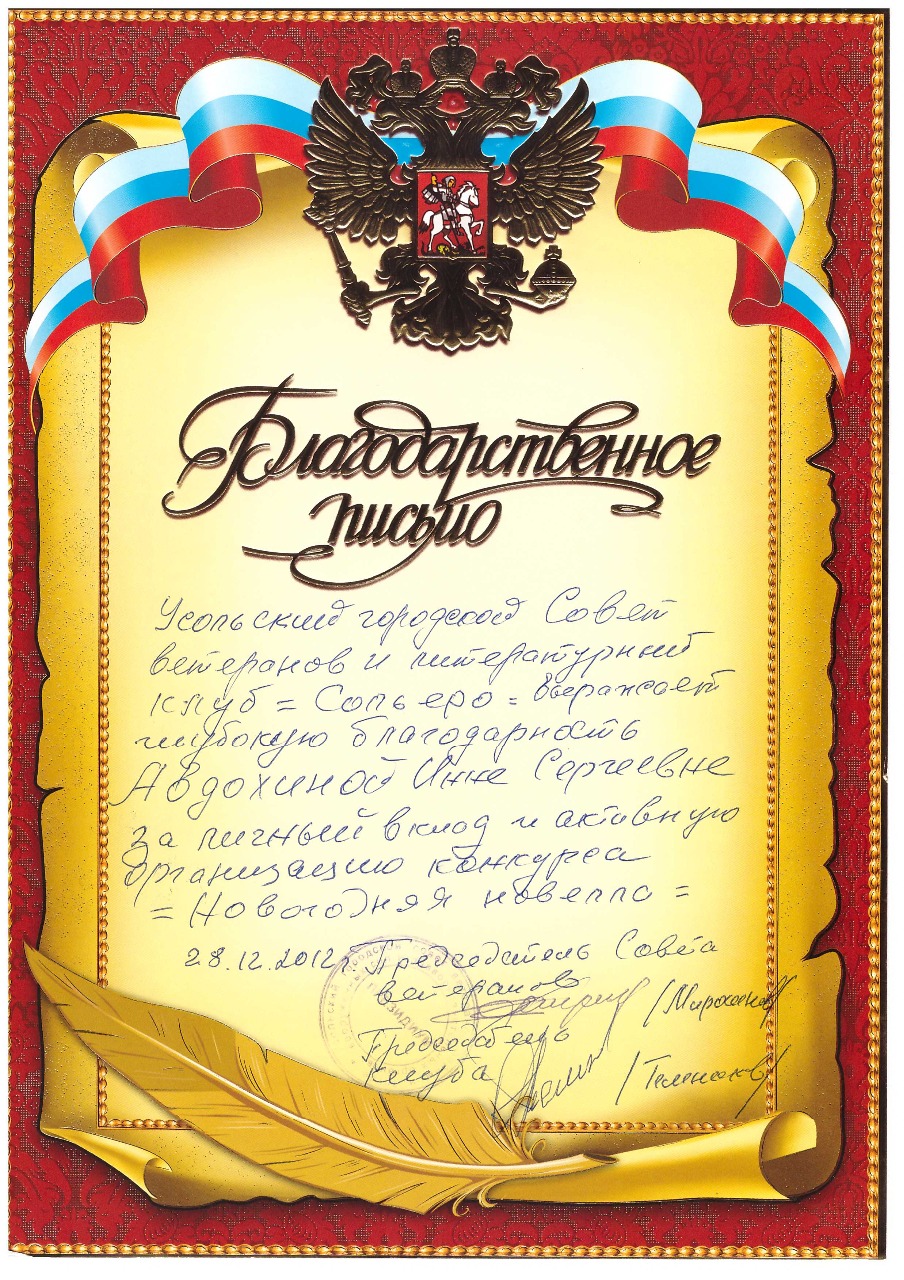 Благодарственное
письмо
Усольский городской Совет
ветеранов и литературный
клуб = Сольеро = выражает
глубокую благодарность
Авдохиной Инне Сергеевне
за личный вклад и активную
организацию конкурса
= Новогодняя новелла =
28.12.2012 г. Председатель Совета
ветеранов
Председатель
клуба